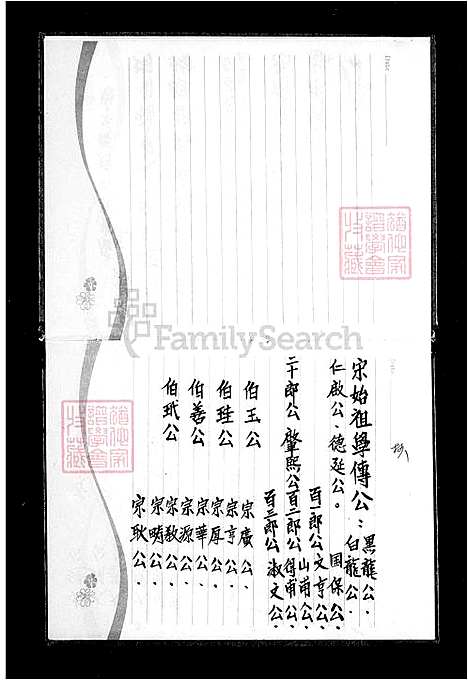 Date
FamilySearch
宋始祖學傳公：黑龍公．白龍公．
仁啟公、德延公。 国保公．
百一郎公 文亨公．
二十郎公 肇熙公 百二郎公 山莆公．
百三郎公 淑文公．
伯玉公 宗廣公．
宗亨公．
伯珪公 宗厚公．
宗華公．
伯善公 宗源公．
宗敎公．
伯玳公 宗疇公．
宗耿公．